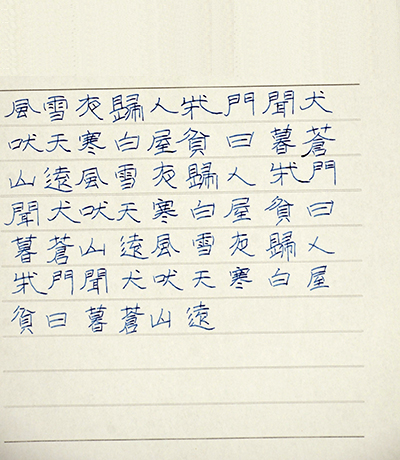 風雪夜歸人柴門聞犬
吠天寒白屋貧日暮蒼
山遠風雪夜歸人柴門
聞犬吠天寒白屋貧日
暮蒼山遠風雪夜歸人
柴門聞犬吠天寒白屋
貧日暮蒼山遠